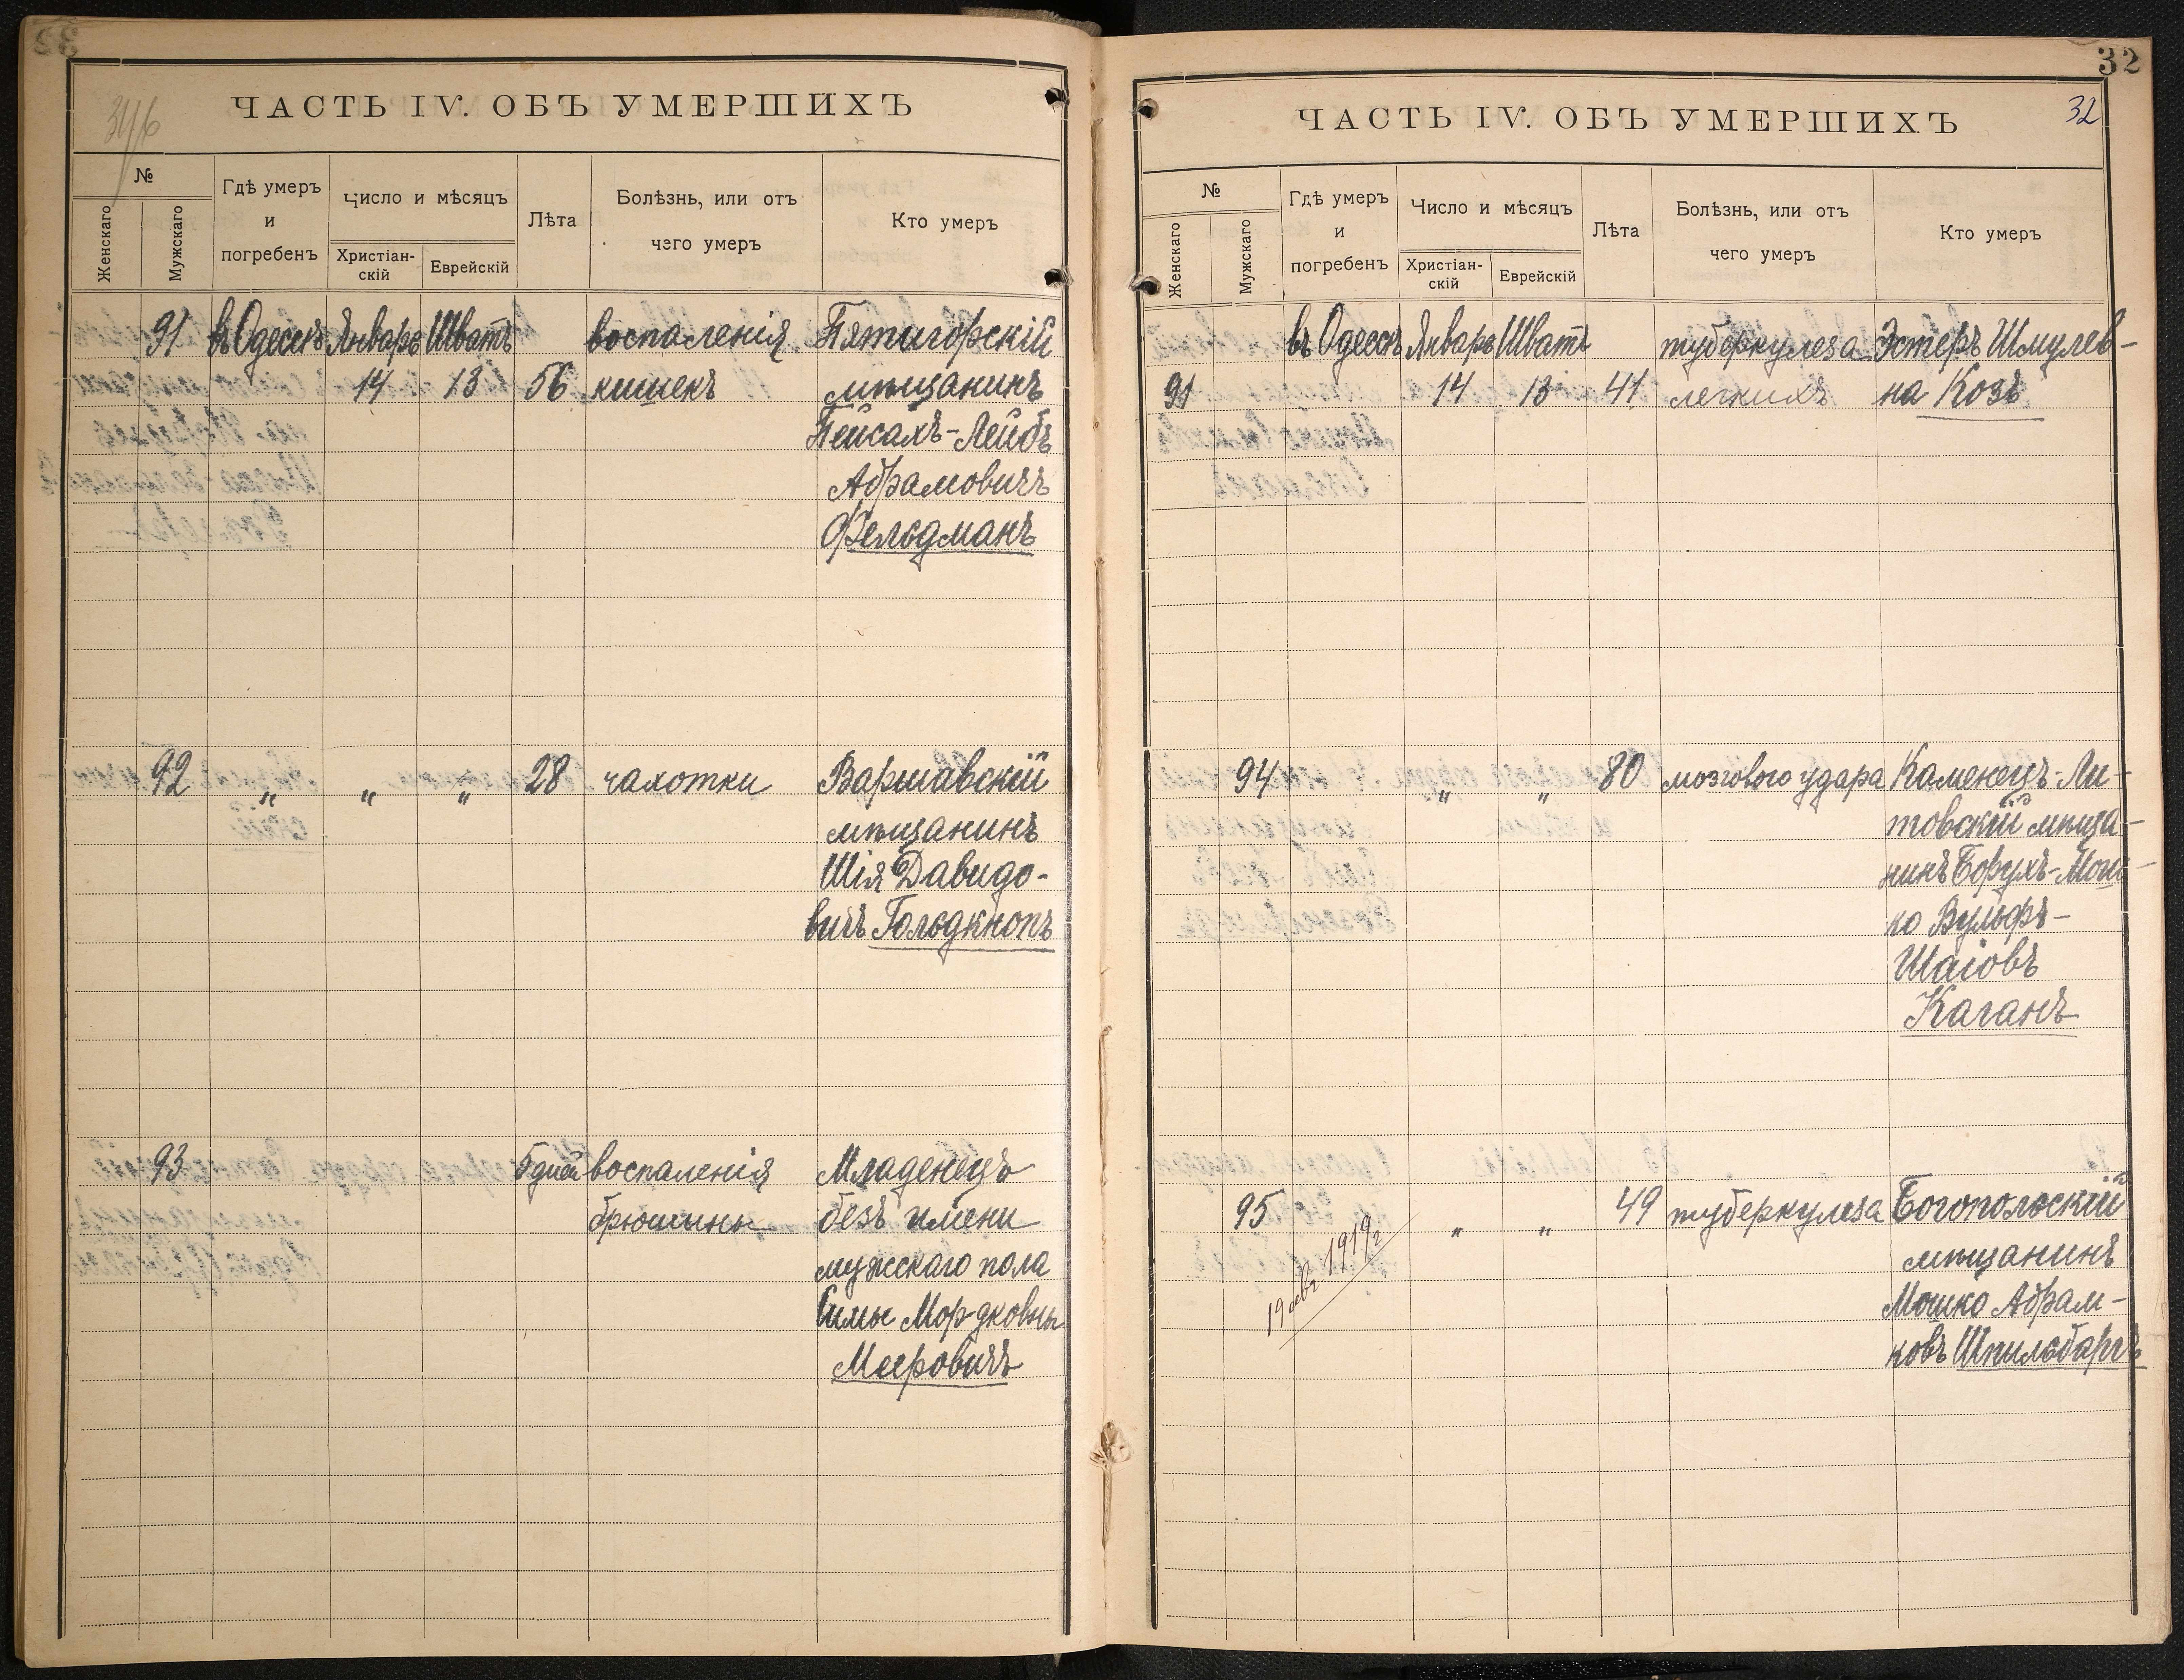 ЧАСТЬ IV. ОБЪ УМЕРШИХЪ
№
Женскаго
Мужскаго
Гдѣ умеръ
и
погребенъ
Число и мѣсяцъ
Христіан-
скій
Еврейскій
Лѣта
Болѣзнь, или отъ
чего умеръ
Кто умеръ
91 въ Одессѣ Январь Шватъ воспаленія Пятигорскій
14 13 56 кишекъ мѣщанинъ
Пейсахъ-Лейбъ
Абрамовичъ
Фельдманъ
92 „ „ „ 28 чахотки Варшавскій
мѣщанинъ
Шія Давидо-
вичъ Гольдкнопъ
93 5 дней воспаленія Младенецъ
брюшины безъ имени
мужскаго пола
Симы Мордковны
Мееровичъ
32
ЧАСТЬ IV. ОБЪ УМЕРШИХЪ
32
№
Женскаго
Мужскаго
Гдѣ умеръ
и
погребенъ
Число и мѣсяцъ
Христіан-
скій
Еврейскій
Лѣта
Болѣзнь, или отъ
чего умеръ
Кто умеръ
въ Одессѣ Январь Шватъ туберкулеза Эстеръ Шмулев-
91 14 13 41 легкихъ на Козъ
94 „ „ 80 мозгового удара Каменецъ-Ли-
товскій мѣща-
нинъ Борухъ-Мош-
ко Вульфъ-
Шаіовъ
Каганъ
95 „ „ 49 туберкулеза Богопольскій
мѣщанинъ
Мошко Абрам-
ковъ Шпильбаргъ
1919г